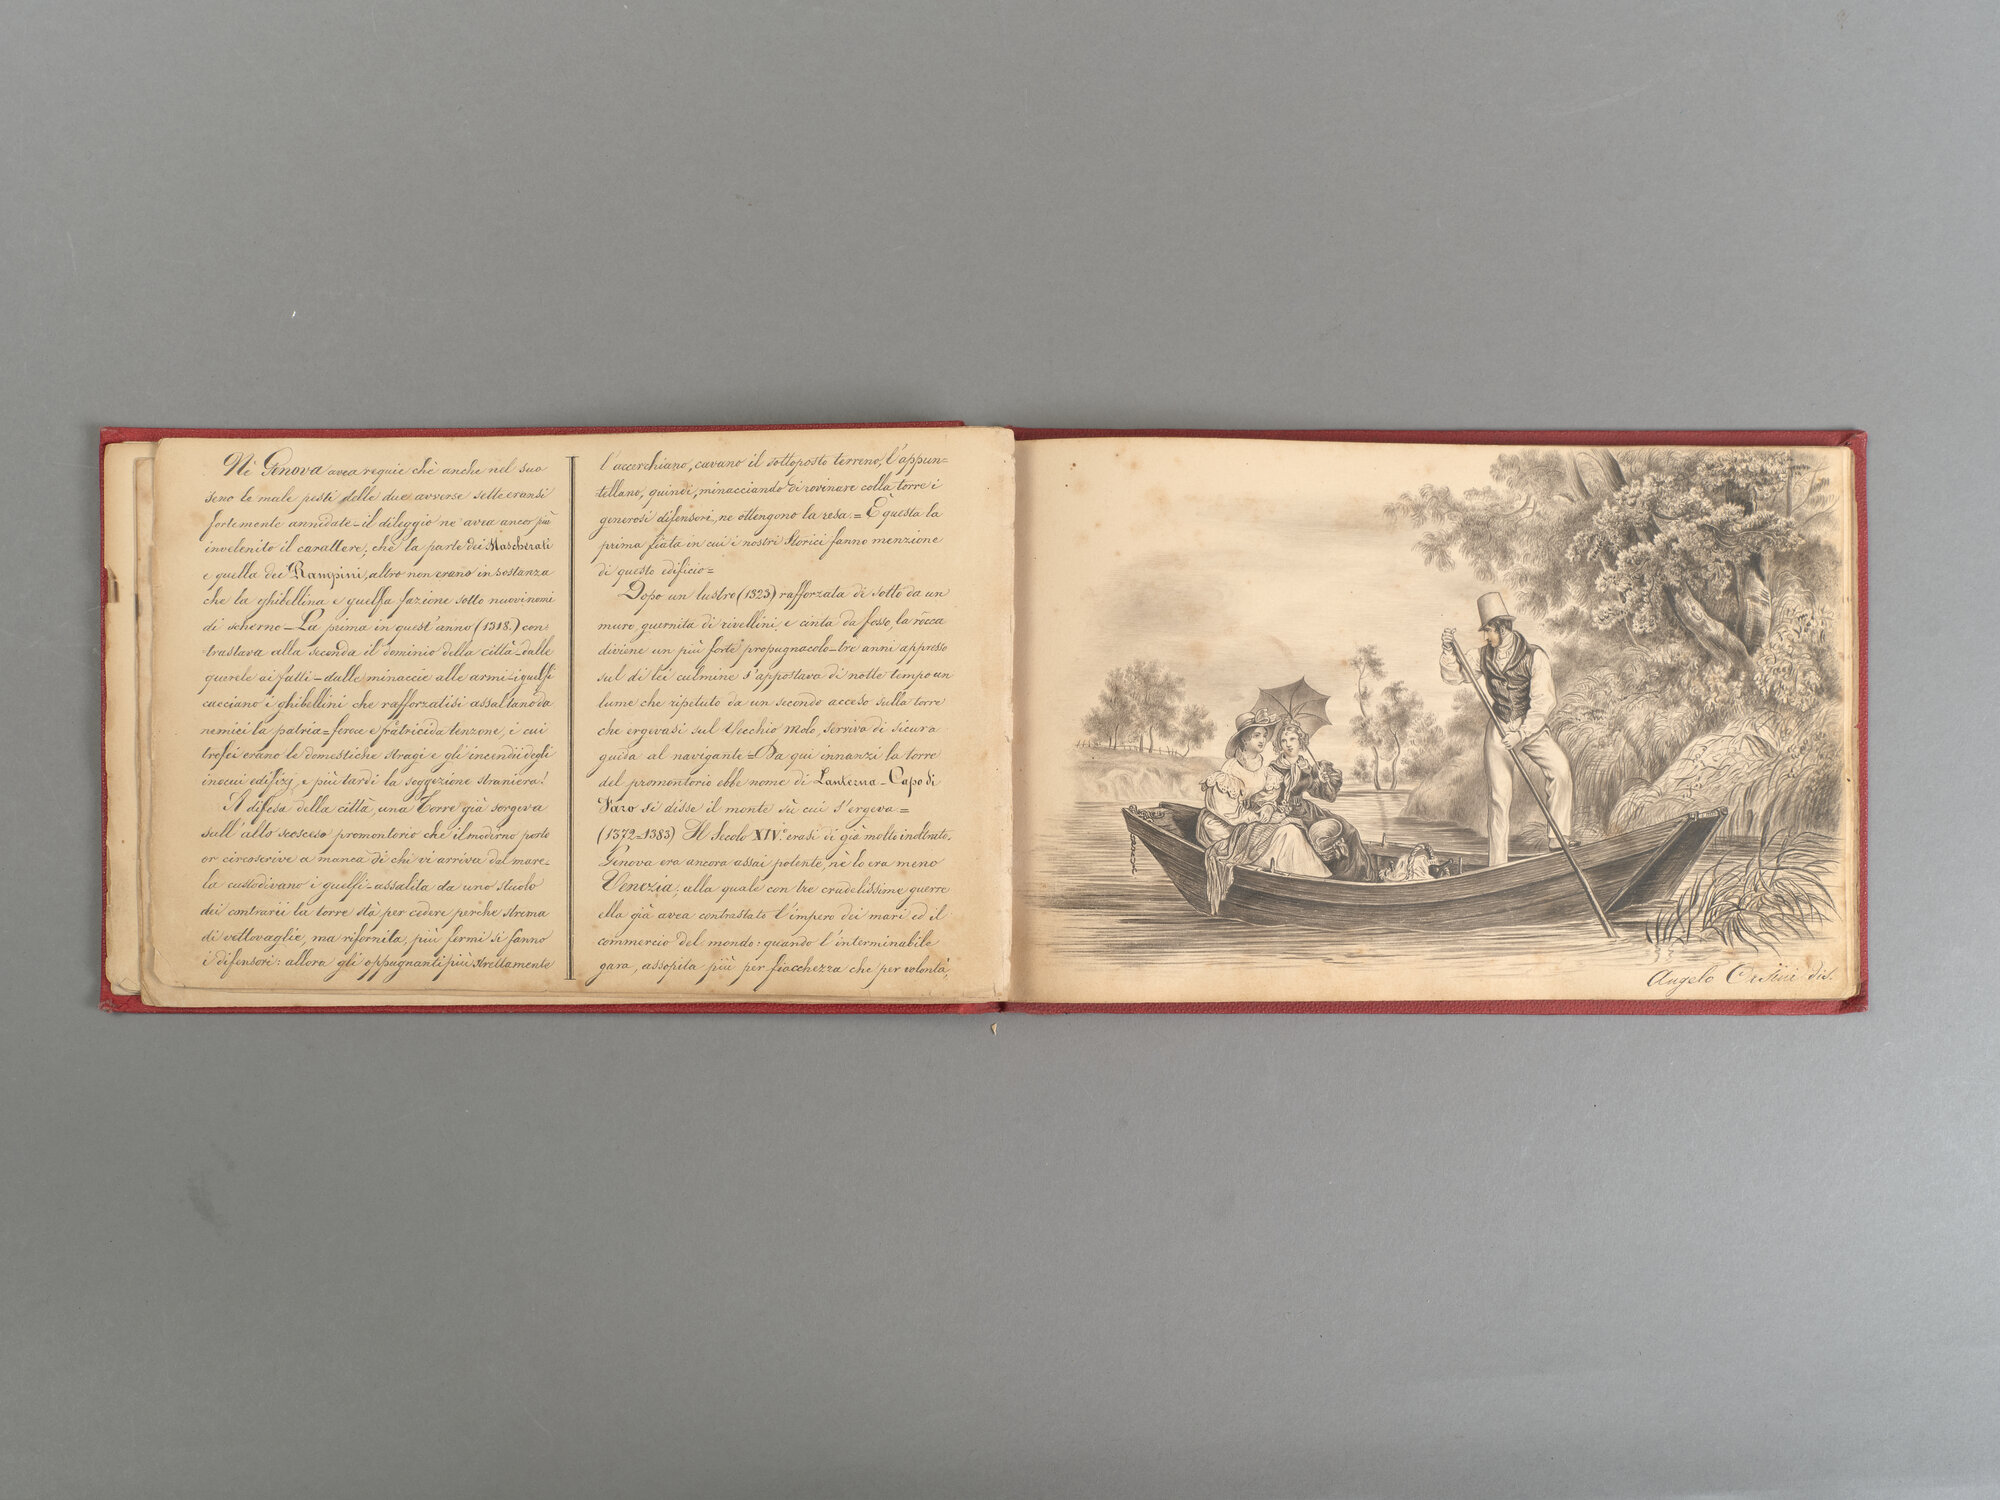 Nè Genova avea requie chè anche nel suo
seno le male pesti delle due avverse sette eransi
fortemente annidate – il dileggio ne avea ancor più
invelenito il carattere, chè la parte dei Mascherati
e quella dei Rampini, altro non erano in sostanza
che la ghibellina e guelfa fazione sotto nuovi nomi
di scherno – La prima in quest'anno (1318.) con-
trastava alla seconda il dominio della città – dalle
querele ai fatti – dalle minaccie alle armi – i guelfi
cacciano i ghibellini che rafforzatisi assaltano da
nemici la patria = feroce e fratricida tenzone, e cui
trofei erano le domestiche stragi e gli incendii degli
inocui edifizj, e più tardi la soggezione straniera!
A difesa della città, una Torre già sorgeva
sull'alto scosceso promontorio che il moderno porto
or circoscrive a manca di chi vi arriva dal mare =
la custodivano i guelfi – assalita da uno stuolo
dei contrarii la torre stà per cedere perchè strema
di vettovaglie, ma rifornita, più fermi si fanno
i difensori: allora gli oppugnanti più strettamente
l'accerchiano, cavano il sottoposto terreno, l'appun=
tellano, quindi, minacciando di rovinare colla torre i
generosi difensori, ne ottengono la resa. = È questa la
prima fiata in cui i nostri Storici fanno menzione
di questo edificio =
Dopo un lustro (1323) rafforzata di sotto da un
muro guernita di rivellini, e cinta da fosso, la rocca
diviene un più forte propugnacolo – tre anni appresso
sul di lei culmine s'appostava di notte tempo un
lume che ripetuto da un secondo acceso sulla torre
che ergevasi sul Vecchio Molo, serviva di sicura
guida al navigante = Da qui innanzi la torre
del promontorio ebbe nome di Lanterna – Capo di
Faro si disse il monte sù cui s'ergeva =
(1372=1383) Il Secolo XIV.º erasi di già molto inoltrato.
Genova era ancora assai potente, nè lo era meno
Venezia, alla quale con tre crudelissime guerre
ella già avea contrastato l'impero dei mari ed il
commercio del mondo: quando l'interminabile
gara, assopita più per fiacchezza che per volontà,
Angelo dis.